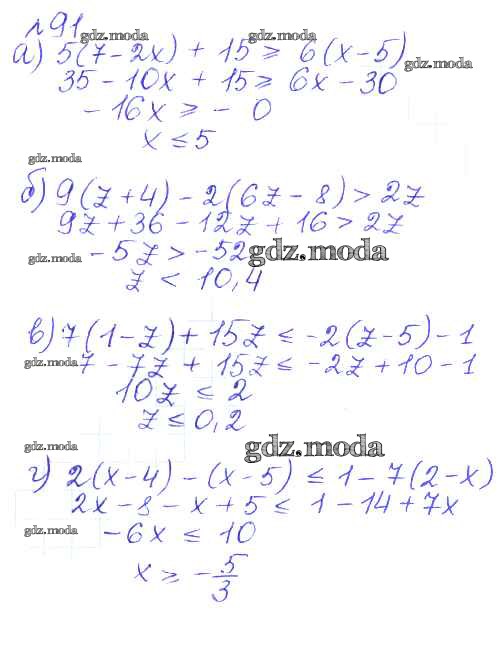 №91
gdz.moda gdz.moda
а) 5(7-2x) + 15 ⩾ 6(x-5)
gdz.moda
35 - 10x + 15 ⩾ 6x - 30
-16x ⩾ - 0
x ≤ 5
gdz.moda
б) 9(z+4) - 2(6z-8) > 2z
9z + 36 - 12z + 16 > 2z
gdz.moda -5z > -52 gdz.moda
z < 10,4
в) 7(1-z) + 15z ≤ -2(z-5) - 1
gdz.moda 7 - 7z + 15z ≤ -2z + 10 - 1
10z ≤ 2
z ≤ 0,2
gdz.moda gdz.moda
г) 2(x-4) - (x-5) ≤ 1 - 7(2-x)
2x - 8 - x + 5 ≤ 1 - 14 + 7x
gdz.moda -6x ≤ 10
x ⩾ - 5/3